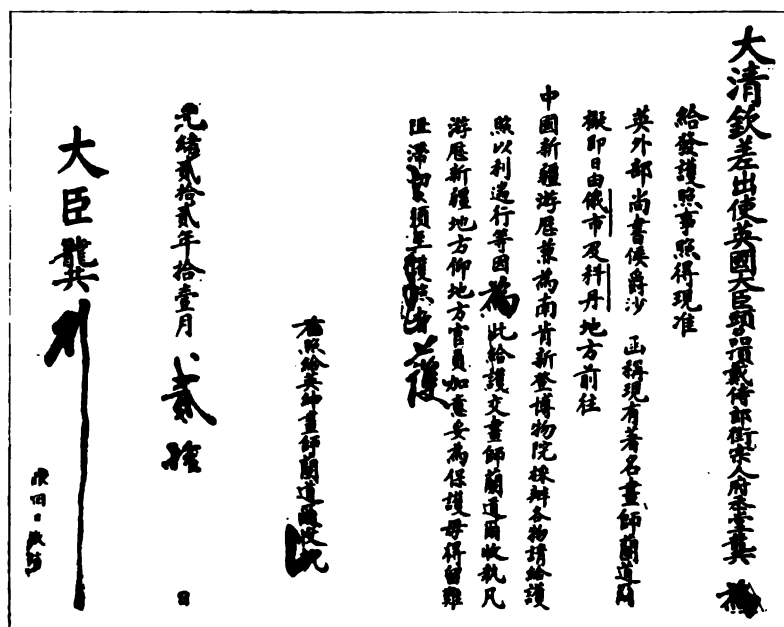 大清欽差出使英國大臣頭品頂戴侍郎銜宗人府丞堂龔 為
給發護照事照得現准
英外部尚書侯爵沙 函稱現有著名畫師蘭道爾
擬即日由俄市及科丹地方前往
中國新疆游歷兼為南肯新登博物院採辦各物請給護
照以利遄行等因為此給護交畫師蘭道爾收執凡
游歷新疆地方仰地方官員加意妥為保護毋得留難
阻滯切須至護照者 護
右照給英紳畫師蘭道爾收執
光緒貳拾貳年拾壹月 貳 日
大臣龔